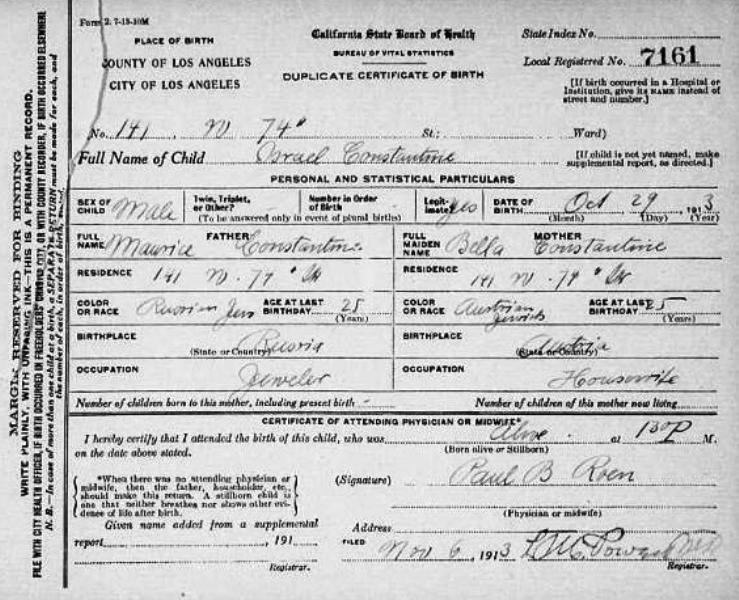 Form 2. 7-15-10M
PLACE OF BIRTH
COUNTY OF LOS ANGELES
CITY OF LOS ANGELES
California State Board of Health
BUREAU OF VITAL STATISTICS
DUPLICATE CERTIFICATE OF BIRTH
State Index No.
Local Registered No. 7161
[If birth occurred in a Hospital or
Institution, give its NAME instead of
street and number.]
No. 141 W 74" St: Ward)
Full Name of Child Israel Constantine
[If child is not yet named, make
supplemental report, as directed.]
PERSONAL AND STATISTICAL PARTICULARS
SEX OF CHILD Male
Twin, Triplet, or Other?
Number in Order of Birth
(To be answered only in event of plural births)
Legitimate? yes
DATE OF BIRTH Oct 29 1913
(Month) (Day) (Year)
FULL NAME FATHER Maurice Constantine
FULL MAIDEN NAME MOTHER Bella Constantine
RESIDENCE 141 W. 74" St
RESIDENCE 141 W. 74" St
COLOR OR RACE Russian Jew AGE AT LAST BIRTHDAY 25 (Years)
COLOR OR RACE Austrian Jewish AGE AT LAST BIRTHDAY 25 (Years)
BIRTHPLACE (State or Country) Russia
BIRTHPLACE (State or Country) Austria
OCCUPATION Jeweler
OCCUPATION Housewife
Number of children born to this mother, including present birth -
Number of children of this mother now living
CERTIFICATE OF ATTENDING PHYSICIAN OR MIDWIFE*
I hereby certify that I attended the birth of this child, who was Alive at 130P M.
on the date above stated. (Born alive or Stillborn)
*When there was no attending physician or
midwife, then the father, householder, etc.,
should make this return. A stillborn child is
one that neither breathes nor shows other evi-
dence of life after birth.
(Signature) Paul B Roen
(Physician or midwife)
Given name added from a supplemental
report , 191
Registrar.
Address
FILED Nov 6, 1913 L M Powers MD
Registrar.
MARGIN RESERVED FOR BINDING
WRITE PLAINLY, WITH UNFADING INK—THIS IS A PERMANENT RECORD.
FILE WITH CITY HEALTH OFFICER, IF BIRTH OCCURRED IN FREEHOLDERS' CHARTER CITY, OR WITH COUNTY RECORDER, IF BIRTH OCCURRED ELSEWHERE
N. B.—In case of more than one child at a birth, a SEPARATE RETURN must be made for each, and
the number of each, in order of birth, stated.